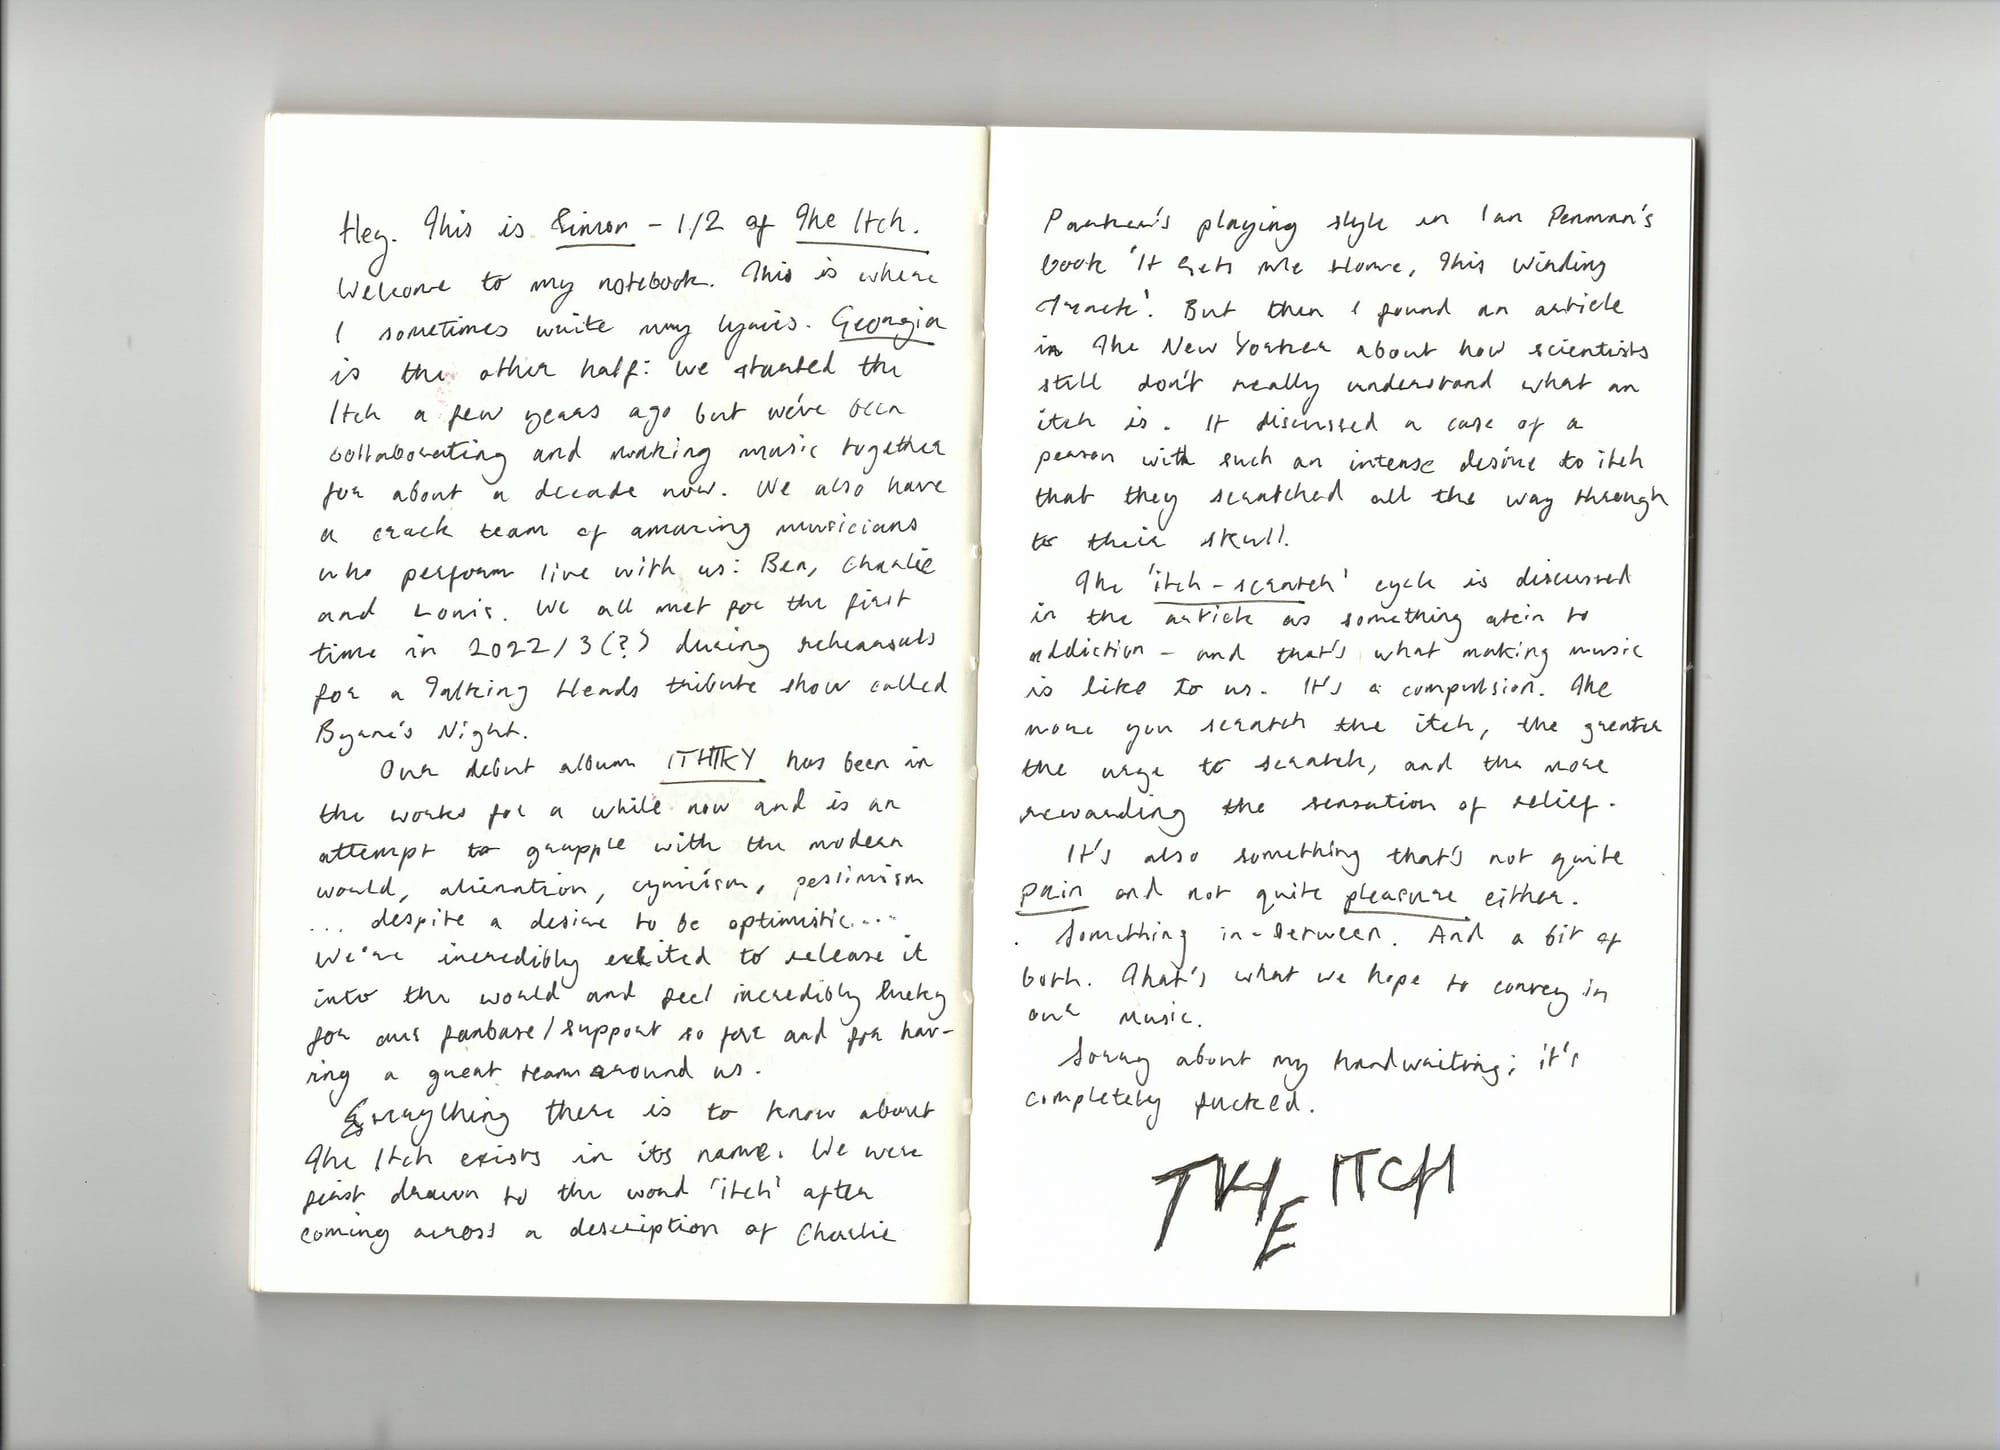 Hey. This is Simon – 1/2 of The Itch.
Welcome to my notebook. This is where
I sometimes write my lyrics. Georgia
is the other half: we started the
Itch a few years ago but we've been
collaborating and making music together
for about a decade now. We also have
a crack team of amazing musicians
who perform live with us: Ben, Charlie
and Louis. We all met for the first
time in 2022/3(?) during rehearsals
for a Talking Heads tribute show called
Byrne's Night.
Our debut album ITHTKY has been in
the works for a while now and is an
attempt to grapple with the modern
world, alienation, cynicism, pessimism
... despite a desire to be optimistic....
We're incredibly excited to release it
into the world and feel incredibly lucky
for our fanbase/support so far and for hav-
ing a great team around us.
Everything there is to know about
The Itch exists in its name. We were
first drawn to the word 'itch' after
coming across a description of Charlie
Parker's playing style in Ian Penman's
book 'It Gets Me Home, This Winding
Track'. But then I found an article
in The New Yorker about how scientists
still don't really understand what an
itch is. It discussed a case of a
person with such an intense desire to itch
that they scratched all the way through
to their skull.
The 'itch-scratch' cycle is discussed
in the article as something akin to
addiction – and that's what making music
is like to us. It's a compulsion. The
more you scratch the itch, the greater
the urge to scratch, and the more
rewarding the sensation of relief.
It's also something that's not quite
pain and not quite pleasure either.
. Something in-between. And a bit of
both. That's what we hope to convey in
our music.
Sorry about my handwriting; it's
completely fucked.
THE ITCH